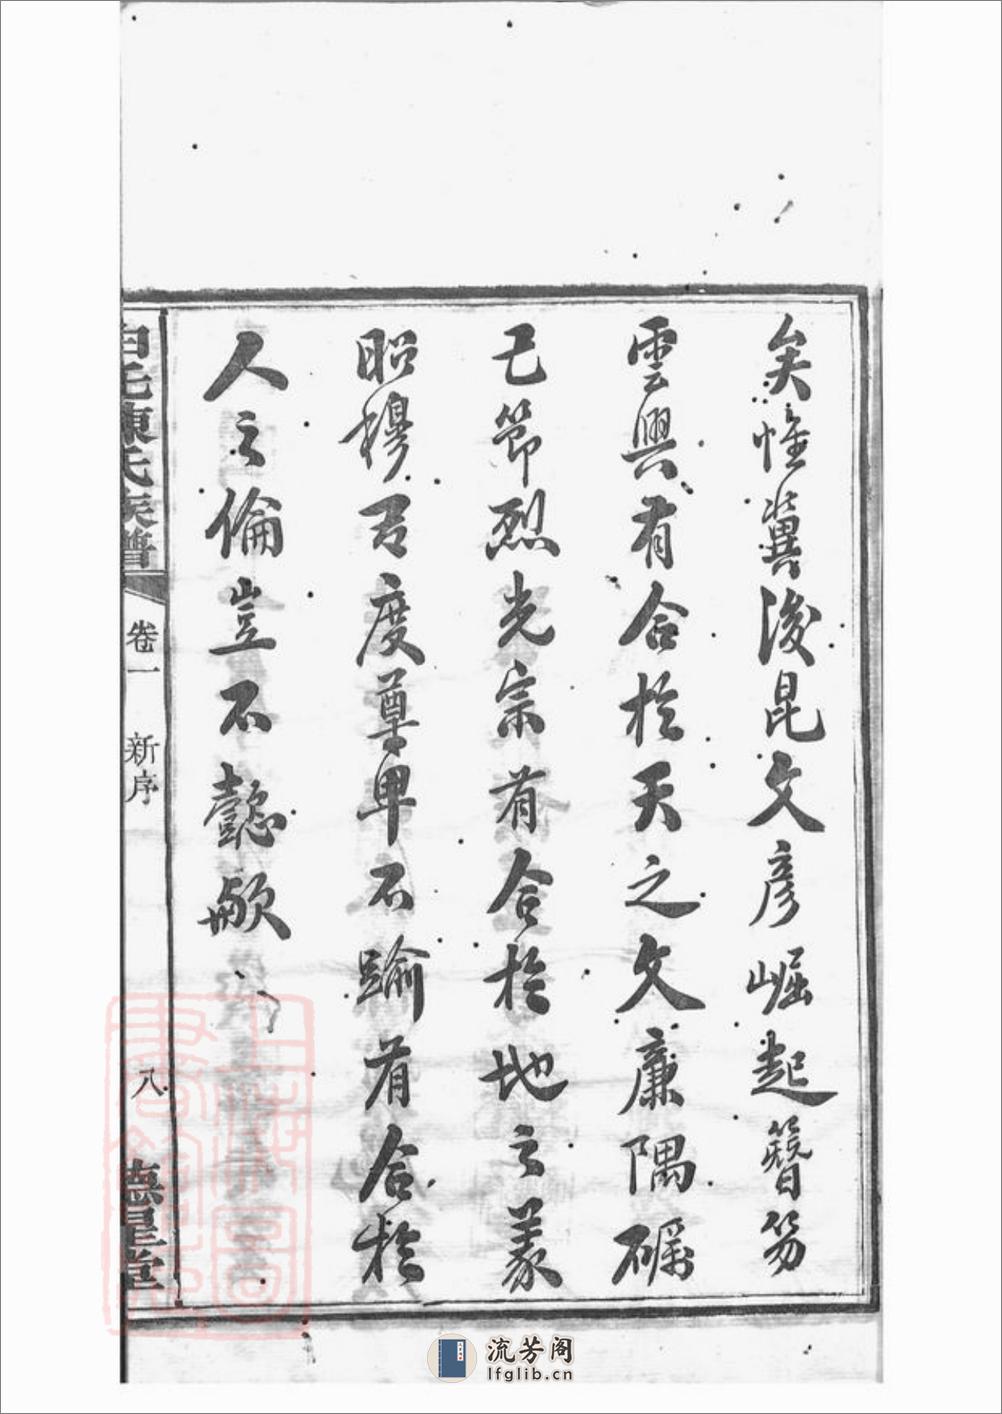 矣惟冀後昆文彥崛起簪笏
雲興有合於天之文廉隅礪
己節烈光宗有合於地之義
昭穆有度尊卑不踰有合於
人之倫豈不懿歟
白毛陳氏族譜
卷一 新序
八
德星堂
流芳阁
lfglib.cn